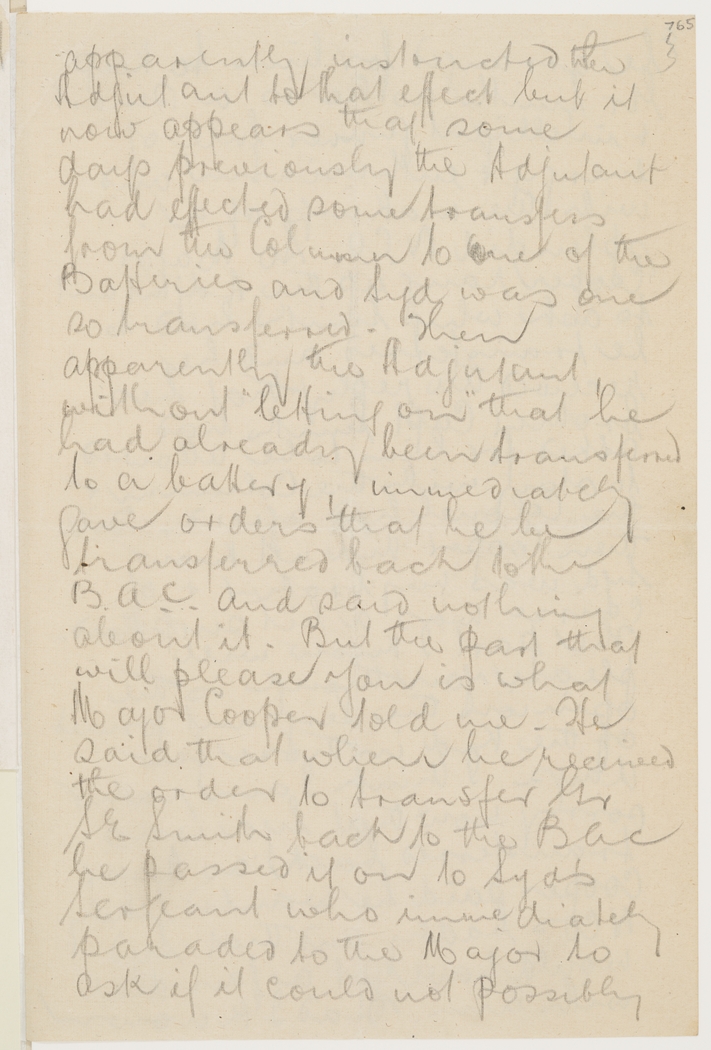 765
3
apparently instructed the
Adjutant to that effect but it
now appears that some
days previously the Adjutant
had effected some transfers
from the Column to one of the
Batteries and Syd was one
so transferred. Then
apparently the Adjutant,
without "letting on" that he
had already been transferred
to a battery, immediately
gave orders that he be
transferred back to the
B.A.C. and said nothing
about it. But the part that
will please you is what
Major Cooper told me. He
said that when he received
the order to transfer Gr
SE Smith back to the BAC
he passed it on to Syd's
Sergeant who immediately
paraded to the Major to
ask if it could not possibly